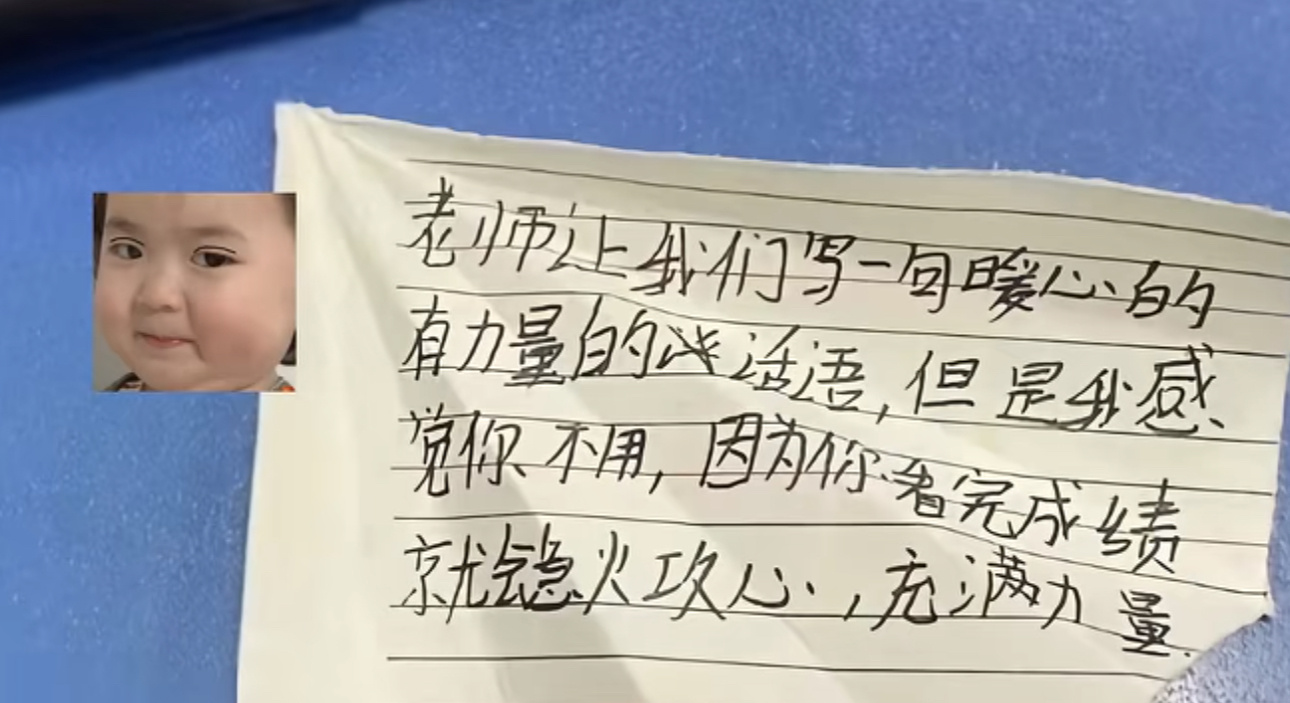 老师让我们写一句暖心的
有力量的话语,但是我感
觉你不用,因为你看完成绩
就会急火攻心,充满力量.